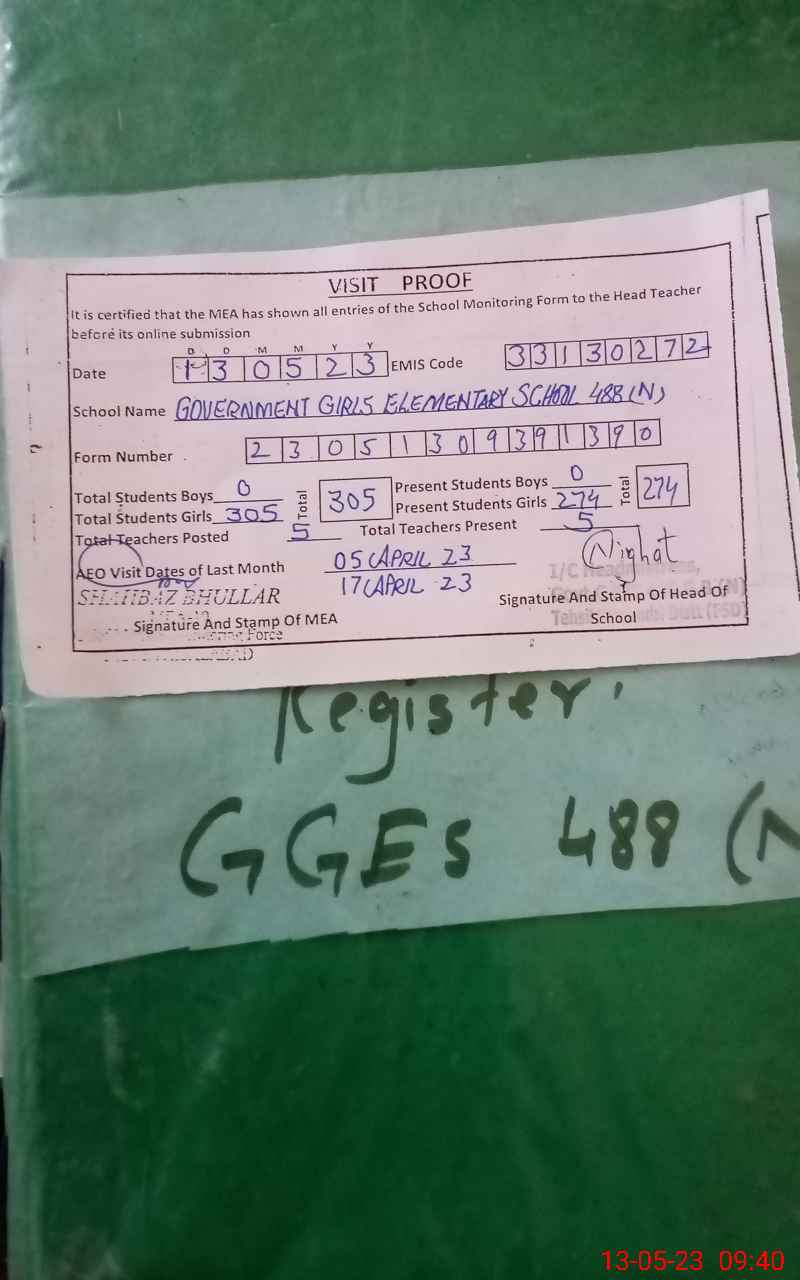 VISIT PROOF
It is certified that the MEA has shown all entries of the School Monitoring Form to the Head Teacher
before its online submission
D D M M Y Y
Date 1 3 0 5 2 3 EMIS Code 3 3 1 3 0 2 7 2
School Name GOVERNMENT GIRLS ELEMENTARY SCHOOL 488 (N)
Form Number 2 3 0 5 1 3 0 9 3 9 1 3 9 0
Total Students Boys 0 Total 305 Present Students Boys 0 Total 274
Total Students Girls 305 Present Students Girls 274
Total Teachers Posted 5 Total Teachers Present 5
AEO Visit Dates of Last Month 05 APRIL 23 Nighat
17 APRIL 23
SHAHBAZ BHULLAR Signature And Stamp Of Head Of
School
Signature And Stamp Of MEA
Force
Register.
GGES 488 (N
13-05-23 09:40